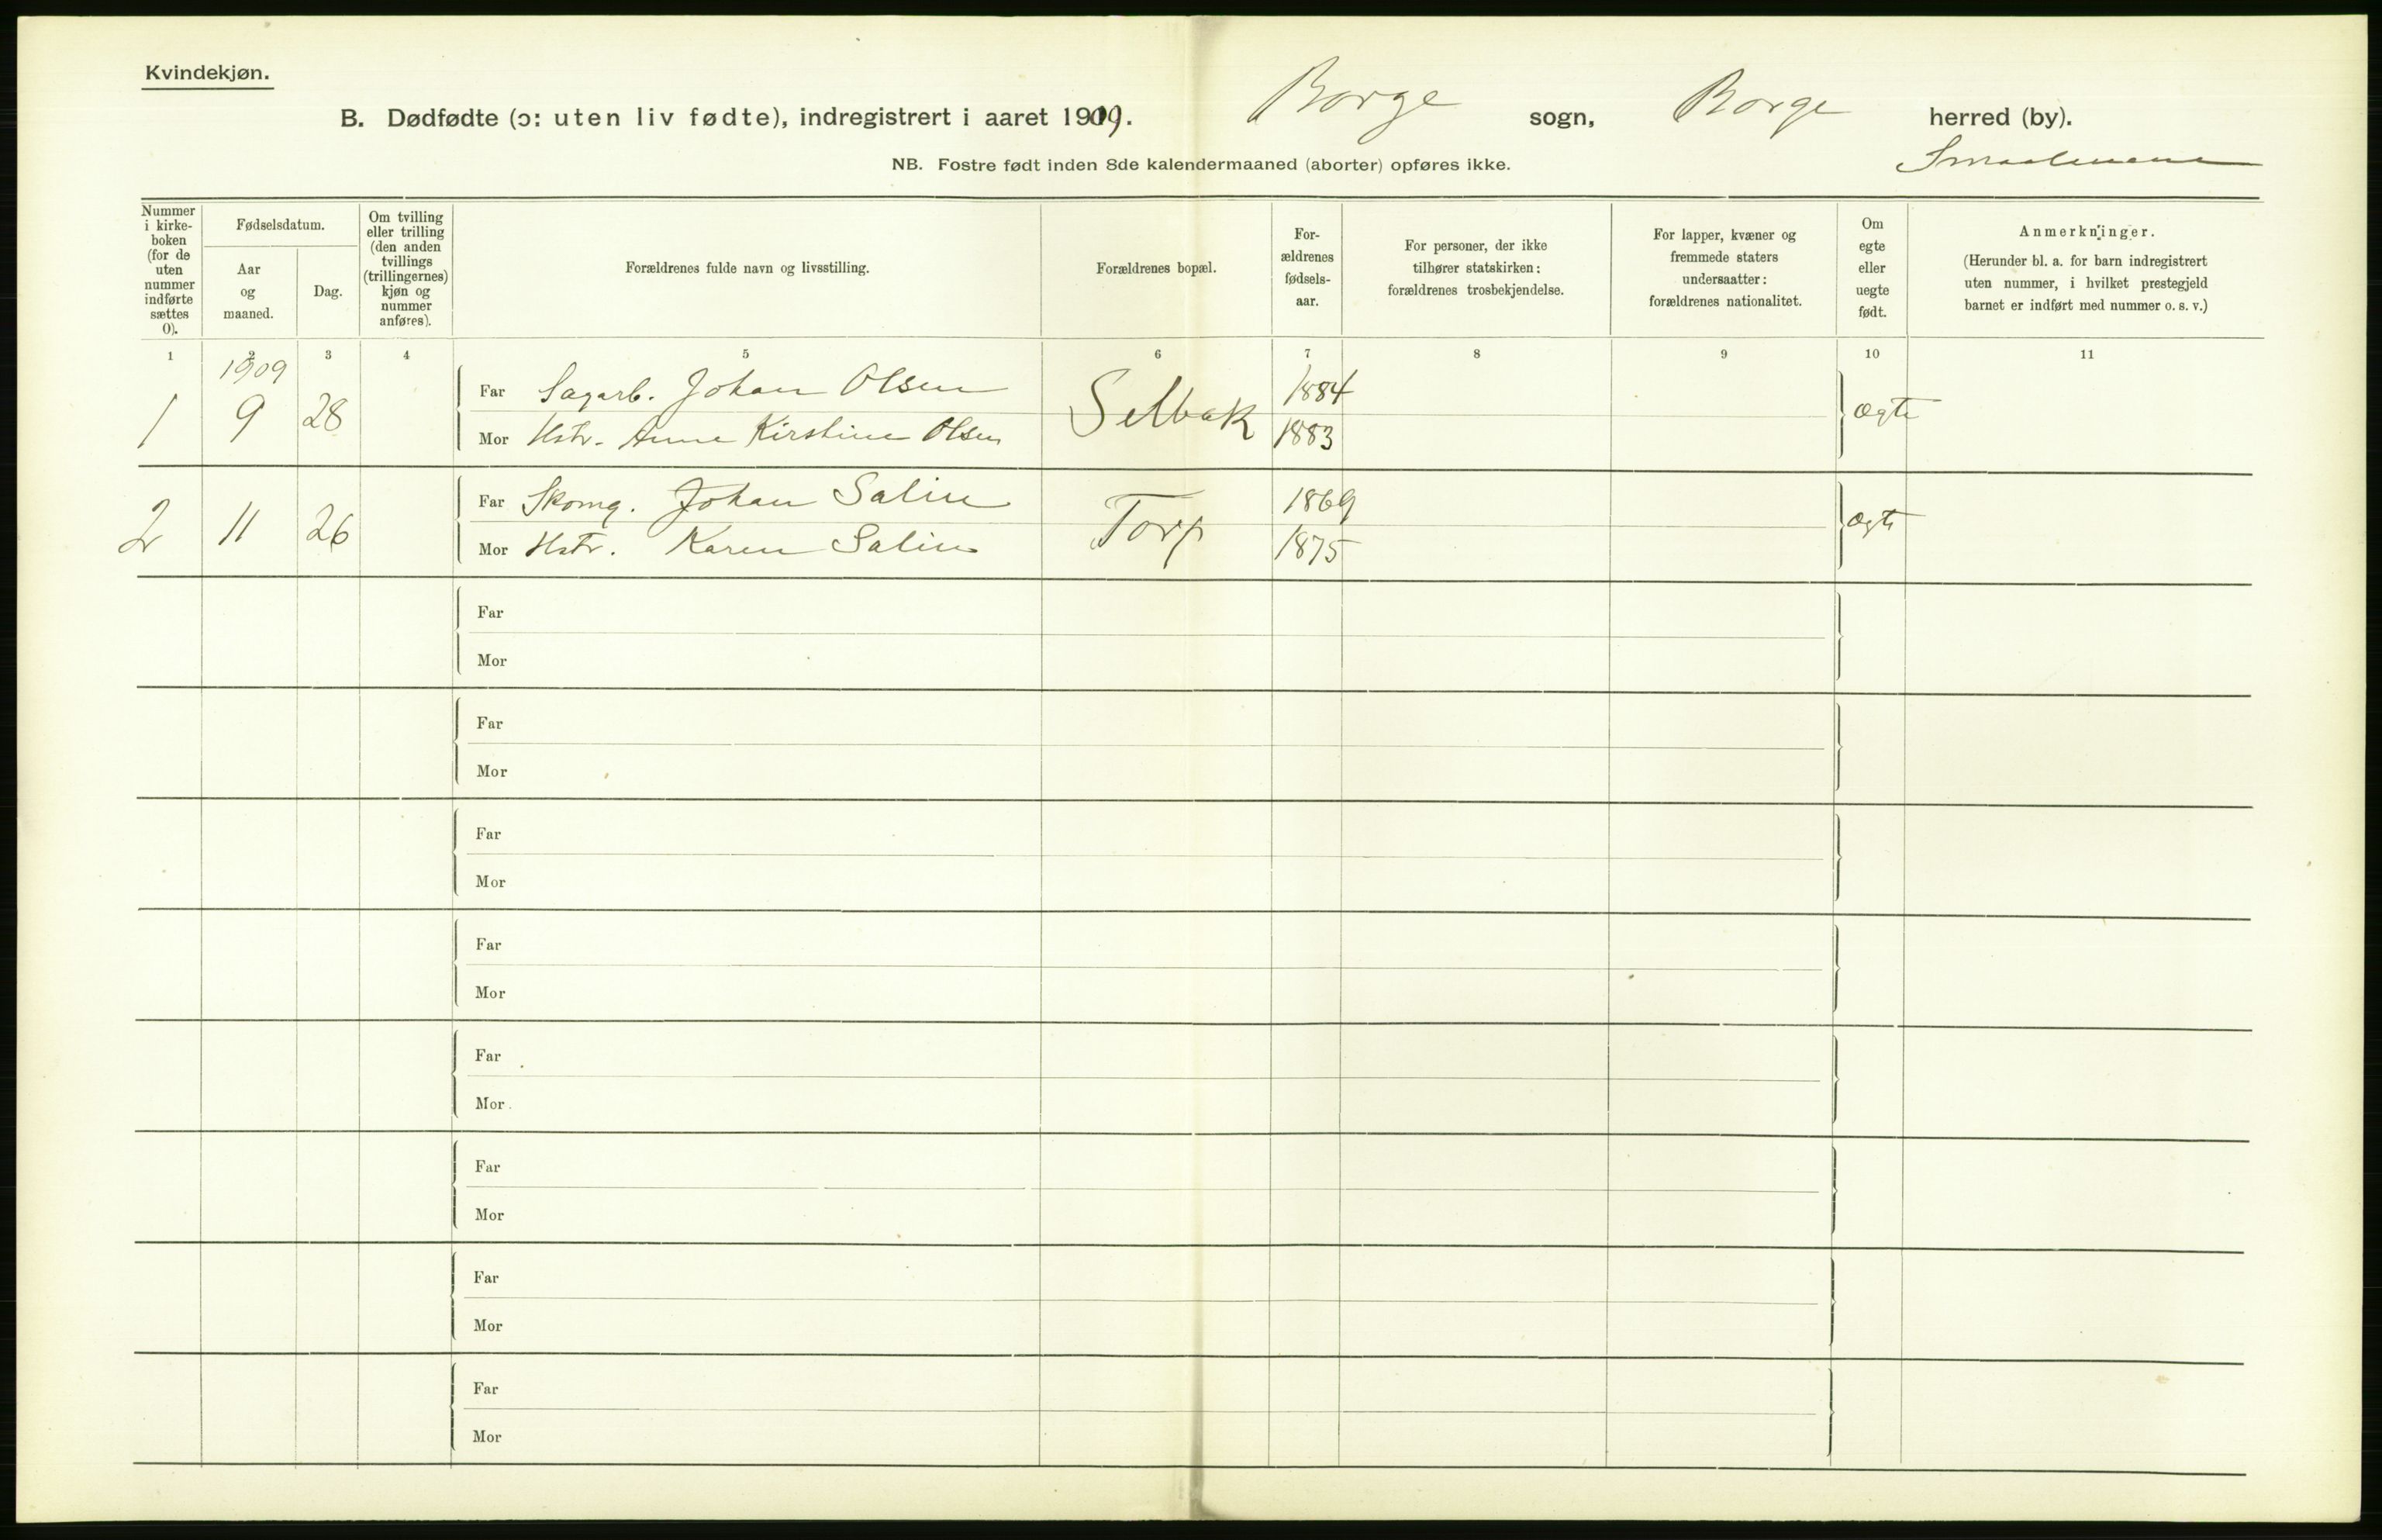 Kvindekjøn.
B. Dødfødte (ɔ: uten liv fødte), indregistrert i aaret 1909. Borge sogn, Borge herred (by).
Smaalenene
NB. Fostre født inden 8de kalendermaaned (aborter) opføres ikke.
Nummer i kirke-boken (for de uten nummer indførte sættes 0).
Fødselsdatum.
Aar og maaned.
Dag.
Om tvilling eller trilling (den anden tvillings (trillingernes) kjøn og nummer anføres).
Forældrenes fulde navn og livsstilling.
Forældrenes bopæl.
For-ældrenes fødsels-aar.
For personer, der ikke tilhører statskirken: forældrenes trosbekjendelse.
For lapper, kvæner og fremmede staters undersaatter: forældrenes nationalitet.
Om egte eller uegte født.
Anmerkninger.
(Herunder bl. a. for barn indregistrert uten nummer, i hvilket prestegjeld barnet er indført med nummer o. s. v.)
1 2 3 4 5 6 7 8 9 10 11
1909
1 9 28 Far Sagarb. Johan Olsen Selbak 1884 ægte
Mor Hstr. Anne Kirstine Olsen 1883
2 11 26 Far Skomg. Johan Salin Torp 1869 ægte
Mor Hstr. Karen Salin 1875
Far
Mor
Far
Mor
Far
Mor
Far
Mor
Far
Mor
Far
Mor
Far
Mor
Far
Mor